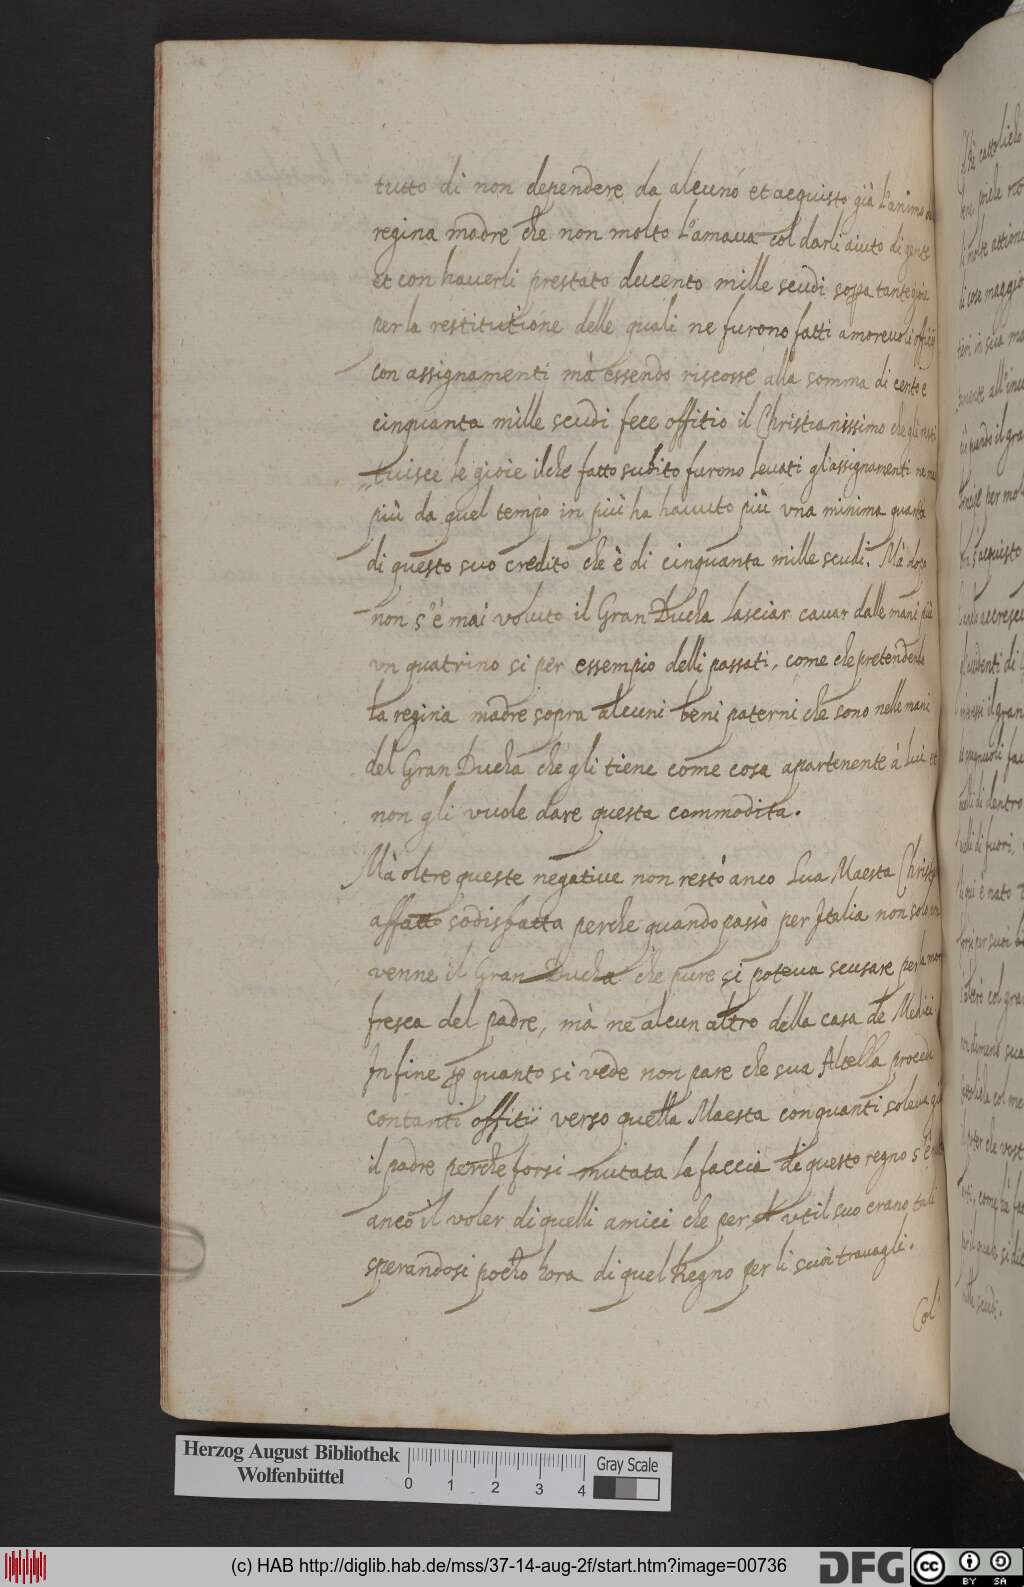 tutto di non dependere da alcuno et acquisto già l'animo
regina madre che non molto l'amaua col darli aiuto di gente
et con hauerli prestato ducento mille scudi sopra tante gioie
per la restitutione delle quali ne furono fatti amoreuoli offitij
con assignamenti mà essendo riscosse alla somma di cento e
cinquanta mille scudi fece offitio il Christianissimo che gli resti
tuisce le gioie ilche fatto subito furono leuati gl'assignamenti ne mai
più da quel tempo in più ha hauuto più vna minima quantà
di questo suo credito che è di cinquanta mille scudi. Mà
non s'è mai voluto il Gran Ducha lasciar cauar dalle mani più
vn quatrino si per essempio delli passati, come che pretendendo
la regina madre sopra alcuni beni paterni che sono nelle mani
del Gran Ducha che gli tiene come cosa apartenente á Lui et
non gli vuole dare questa commodita.
Mà oltre queste negatiue non restò anco Sua Maesta
affatto sodisfatta perche quando passò per Italia non solo
venne il Gran Ducha che pure si poteua scusare per la
fresca del padre, mà ne alcun altro della casa de Medici
Infine per quanto si vede non pare che sua Altezza
con tanti offitij verso quella Maesta con quanti soleua già
il padre perche forsi mutata la faccia di questo regno s'è
anco il voler di quelli amici che per vtil suo erano tali
sperandosi pocho hora di quel Regno per li suoi trauagli.
Col
Herzog August Bibliothek
Wolfenbüttel
0 1 2 3 4
Gray Scale
(c) HAB http://diglib.hab.de/mss/37-14-aug-2f/start.htm?image=00736
DFG
cc BY SA